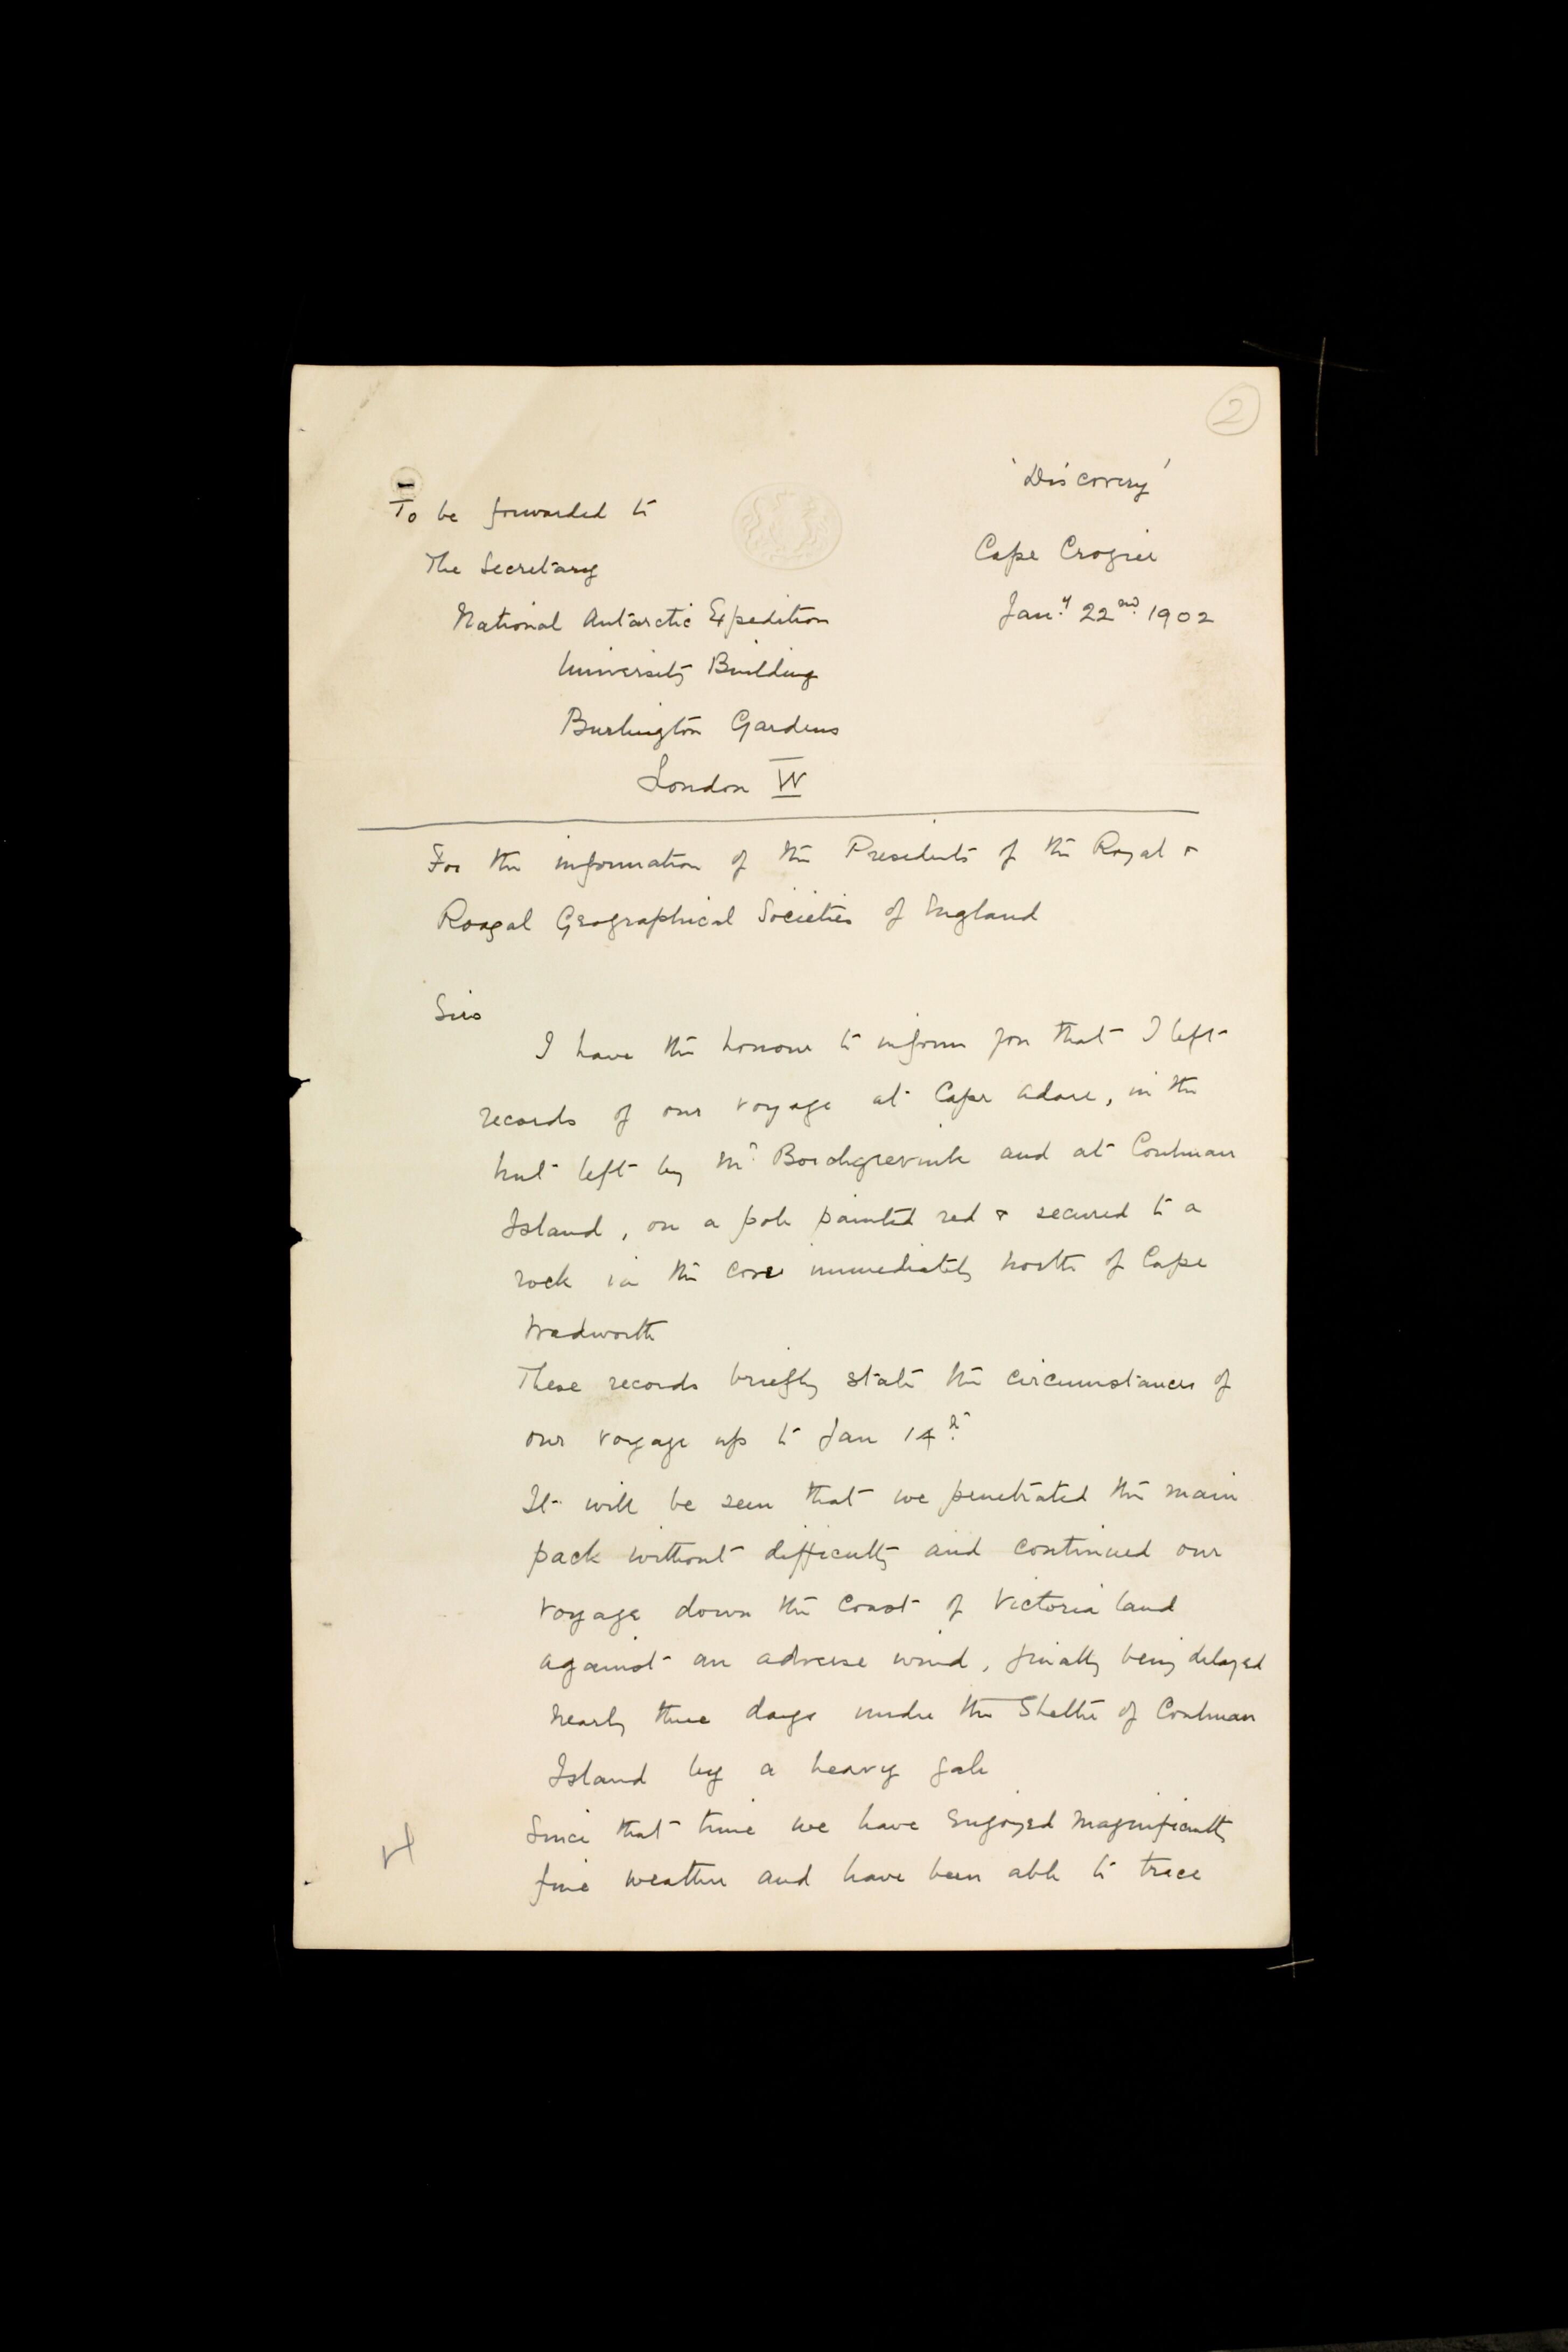 2
'Discovery'
To be forwarded to
Cape Crozier
The Secretary
National Antarctic Expedition
Jan.y 22nd 1902
University Building
Burlington Gardens
London W
For the information of the Presidents of the Royal &
Royal Geographical Societies of England
Sirs
I have the honour to inform you that I left
records of our voyage at Cape Adare, in the
hut left by Mr Borchgrevink and at Coulman
Island, on a pole painted red & secured to a
rock in the cove immediately north of Cape
Wadworth
These records briefly state the circumstances of
our voyage up to Jan 14th
It will be seen that we penetrated the main
pack without difficulty and continued our
voyage down the coast of Victoria land
against an adverse wind, finally being delayed
nearly three days under the Shelter of Coulman
Island by a heavy gale
Since that time we have enjoyed magnificently
fine weather and have been able to trace